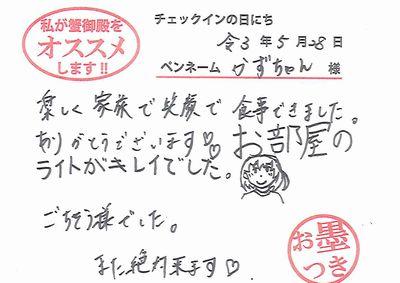 私が蟹御殿を
オススメ
します!!
チェックインの日にち
令3年5月28日
ペンネーム かずちゃん 様
楽しく家族で笑顔で食事できました。
ありがとうございます♡♡お部屋の
ライトがキレイでした。
ごちそう様でした。
また絶対来ます♡
お墨
つき